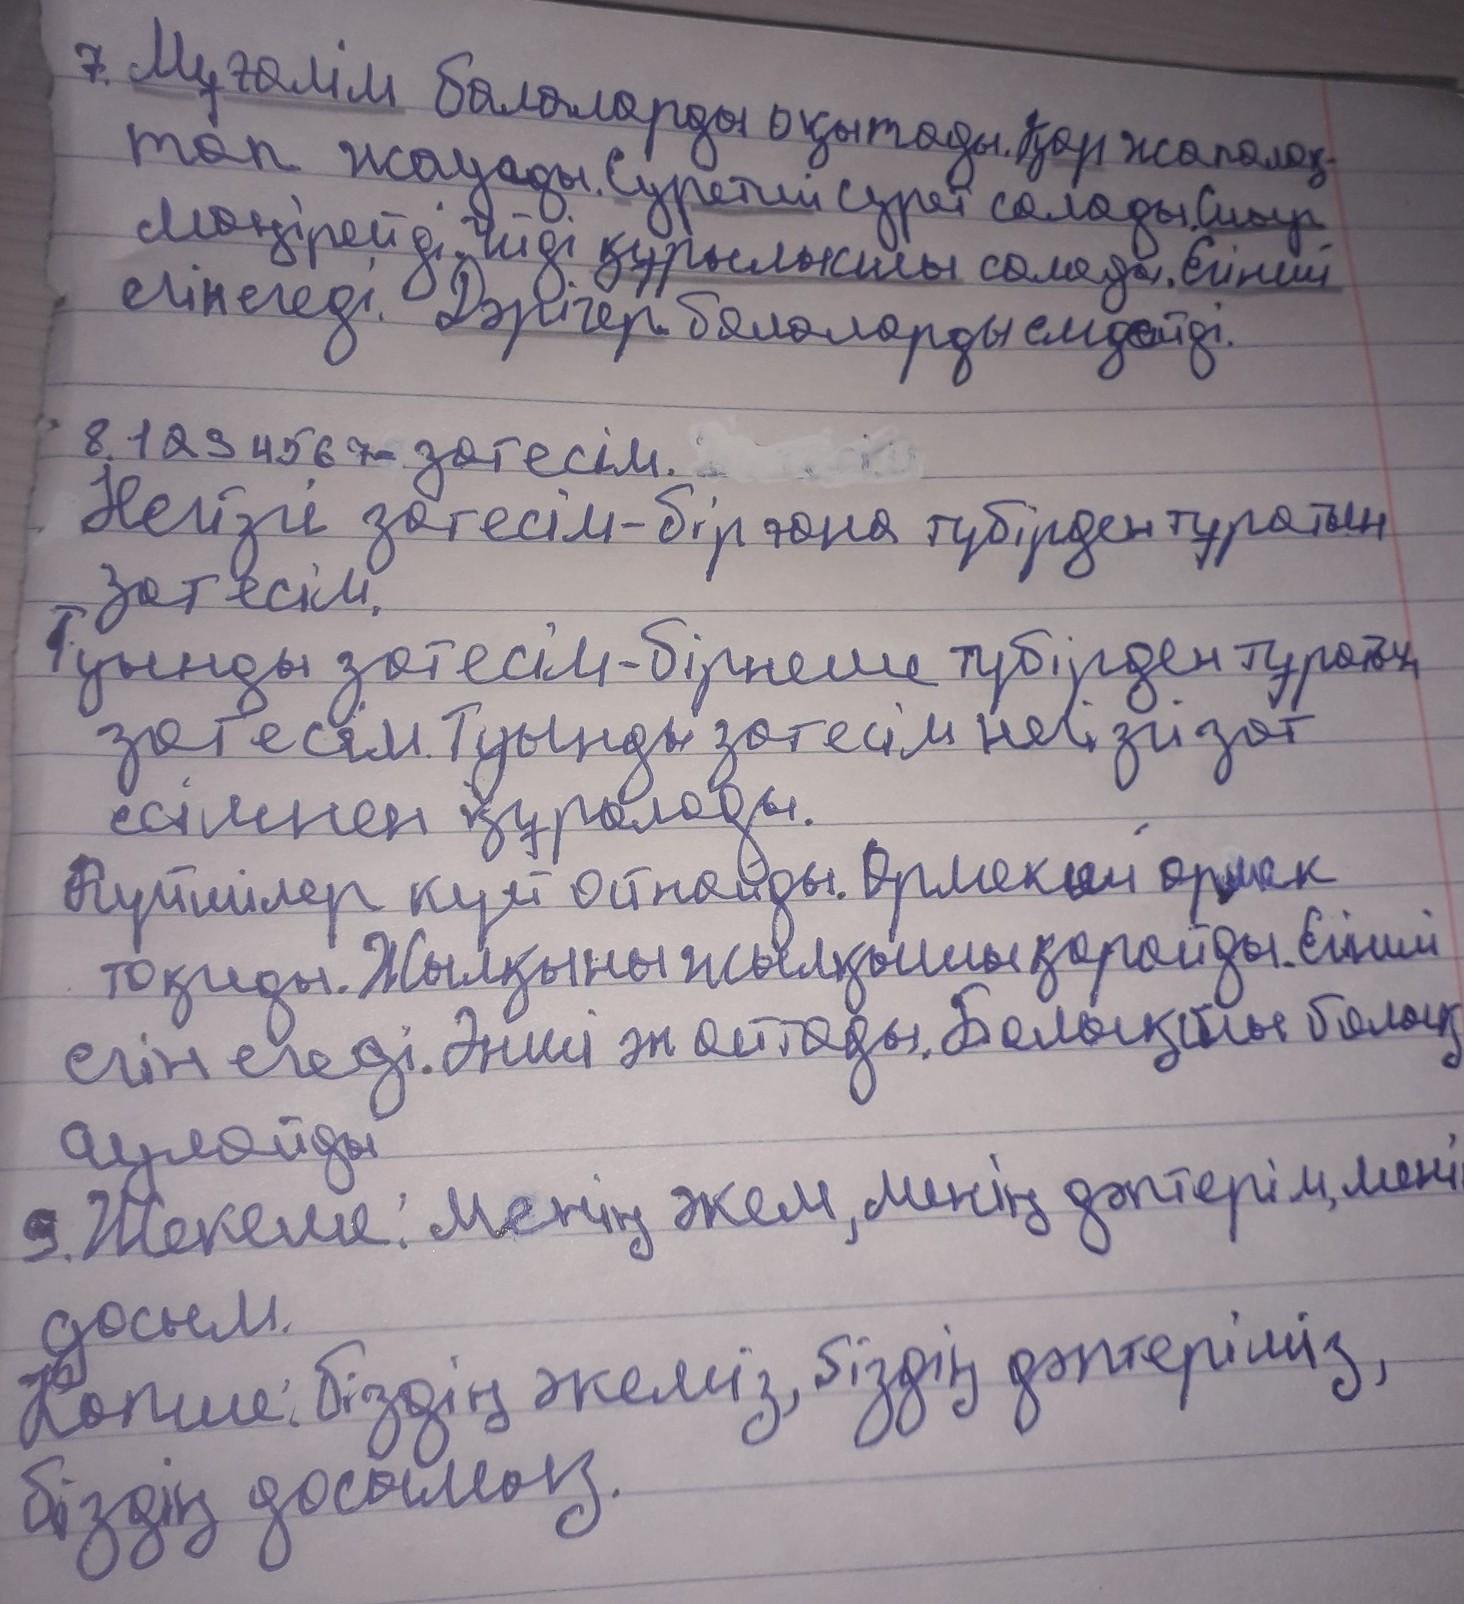 7. Мұғалім балаларды оқытады. Қар жапалақ-
тап жауады. Суретші сурет салады. Сиыр
мөңірейді. Үйді құрылысшы салады. Егінші
егін егеді. Дәрігер балаларды емдейді.
8. 1 2 3 4 5 6 7 - зат есім.
Негізгі зат есім - бір ғана түбірден тұратын
зат есім.
Туынды зат есім - бірнеше түбірден тұратын
зат есім. Туынды зат есім негізгі зат
есімнен құралады.
Күйшілер күй ойнайды. Өрмекші өрмек
тоқиды. Жылқыны жылқышы қарайды. Егінші
егін егеді. Әнші ән айтады. Балықшы балық
аулайды
9. Жекеше: Менің әкем, менің дәптерім, мені
досым.
Көпше: біздің әкеміз, біздің дәптеріміз,
біздің досымыз.